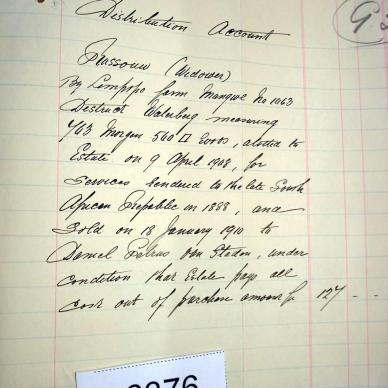 Distribution Account
G
Prassouw (Widower)
By Limpopo farm Mangwe No 1063
District Waterberg measuring
763 Morgen 560 □ Roods, aloted to
Estate on 9 April 1908, for
Services rendered to the late South
African Republic in 1888, and
Sold on 18 January 1910 to
Daniel Petrus van Staden, under
condition that Estate pays all
cost out of purchase amount for 127 - -